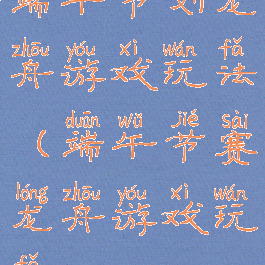 端午节划龙
zhōu yóu xì wán fǎ
舟游戏玩法
duān wǔ jié sài
(端午节赛
lóng zhōu yóu xì wán
龙舟游戏玩
fǎ